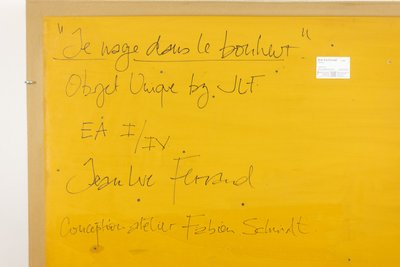 "Je nage dans le bonheur"
Objet Unique by JLF
EA I/IV
Jean Luc Ferrand
Conception atelier Fabien Schmidt